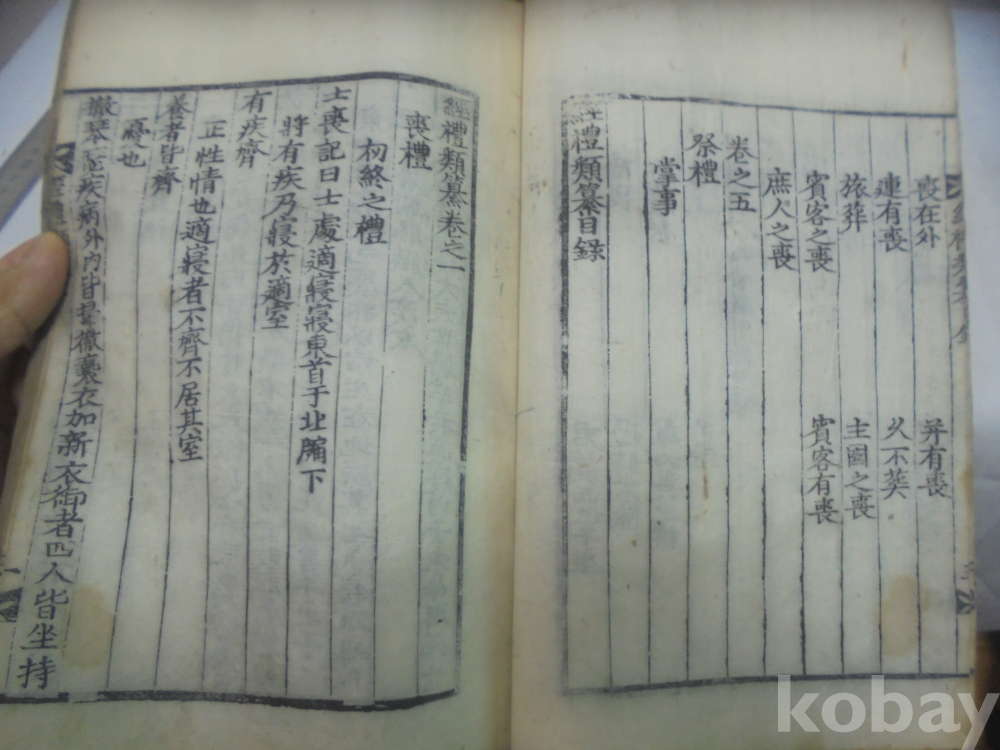 喪在外 并有喪
連有喪 久不葬
旅葬 主國之喪
賓客之喪 賓客有喪
庶人之喪
卷之五
祭禮
掌事
經禮類纂目錄
經禮類纂卷之一
喪禮
初終之禮
士喪記曰士處適寢寢東首于北牖下
將有疾乃寢於適室
有疾齊
正性情也適寢者不齊不居其室
養者皆齊
憂也
撤琴瑟疾病外内皆埽徹褻衣加新衣御者四人皆坐持
kobay